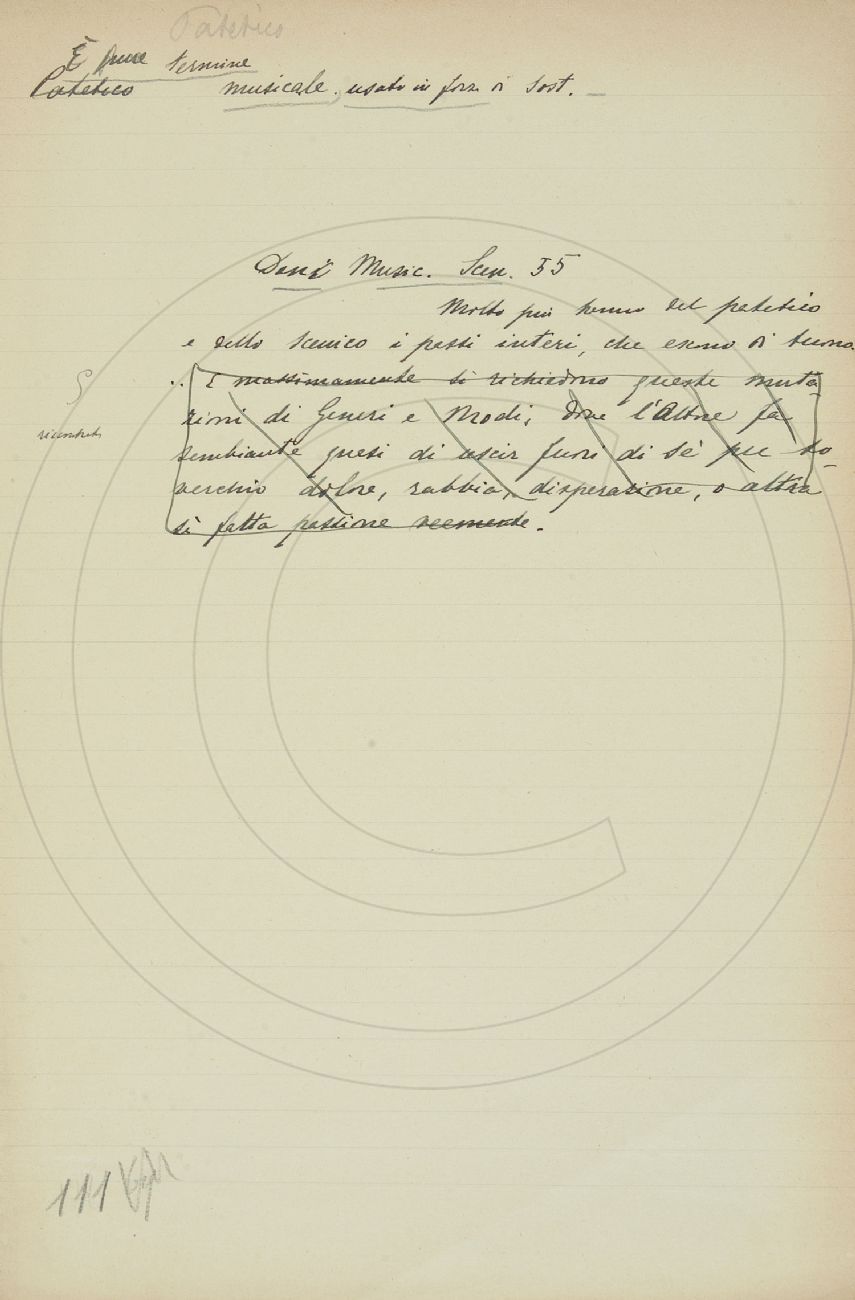 Patetico
È pure termine
Patetico musicale, usato in forza di Sost. —
Doni Music. Scen. 35
Molto più hanno del patetico
e dello scenico i passi interi, che escono di tuono.
.. E massimamente si richiedono queste muta-
zioni di Generi e Modi; dove l'Attore fa
sembiante quasi di uscir fuori di sè per so-
verchio dolore, rabbia, disperazione, o altra
sì fatta passione veemente.
riscontrato
111